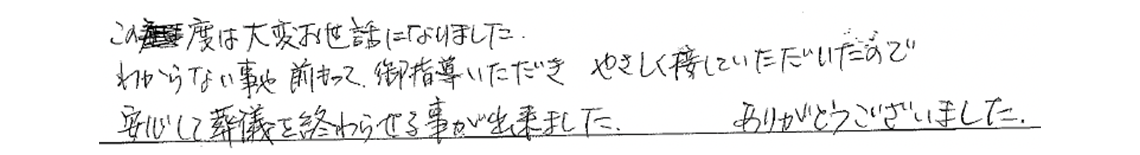 この度は大変お世話になりました.
わからない事や前もって、御指導いただき やさしく接していただいたので
安心して葬儀を終わらせる事が出来ました. ありがとうございました.